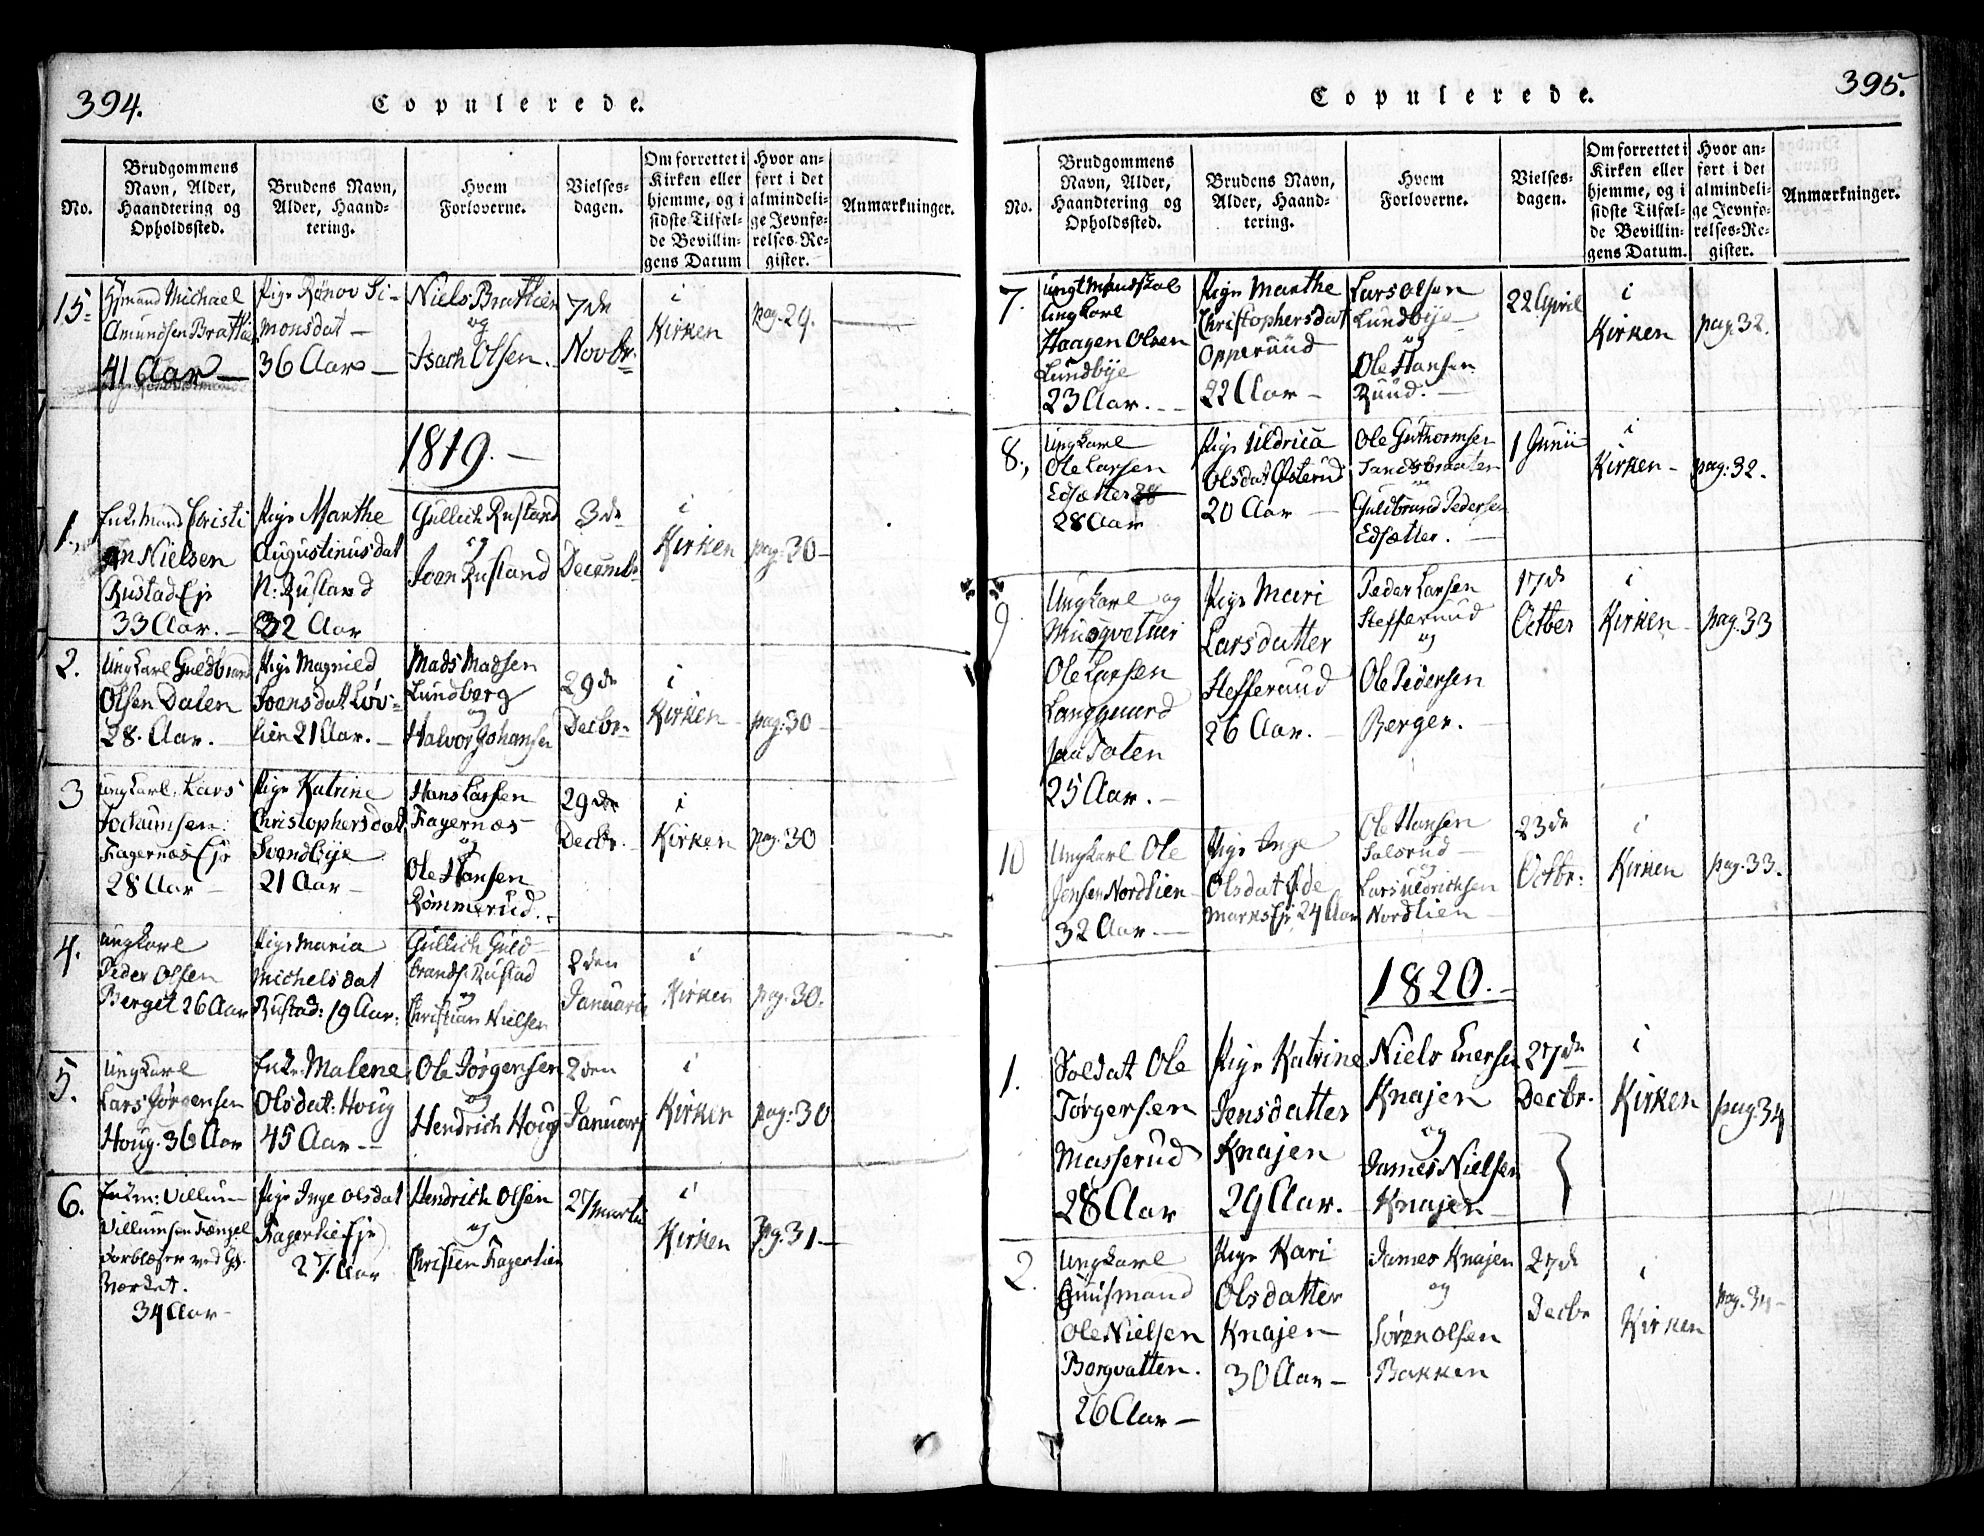 394.
Copulerede.
No.
Brudgommens
Navn, Alder,
Haandtering og
Opholdssted.
Brudens Navn,
Alder, Haand-
tering.
Hvem
Forloverne.
Vielses-
dagen.
Om forrettet i
Kirken eller
hjemme, og i
sidste Tilfæl-
de Bevillin-
gens Datum
Hvor an-
ført i det
almindeli-
ge Jevnfø-
relses-Re-
gister.
Anmærkninger.
15.
Michael
Amundsen Brathie
41 Aar —
Pige Rønov Si-
monsdat —
36 Aar —
Niels Brathien
og
Isach Olsen.
7de
Novbr.
i
Kirken
pag. 29.
1819. —
1.
Enkemand Christi
an Nielsen
Rustad Eje
33 Aar. —
Pige Marthe
Augustinusdat
N: Rustad
32 Aar
Gullich Rustand
og
Joen Rustand
3de
Decembr
i
Kirken
pag: 30 —
2.
Ungkarl Guldbrand
Olsen Dalen
28. Aar. —
Pige Magnild
Joensdat Løv-
lien 21 Aar. —
Mads Madsen
Lundberg
og
Halvor Johansen
29de
Decbr.
i
Kirken
pag: 30 —
3
Ungkarl. Lars
Jochumsen:
Fagernæs Eje
28 Aar —
Pige Katrine
Christophersdat
Svendbye
21 Aar —
Hans Larsen
Fagernæs
og
Ole Hansen
Rømmerud.
29de
Decbr.
i
Kirken
pag. 30
4.
Ungkarl
Peder Olsen
Berget 26 Aar
Pige Maria
Michelsdat
Rustad: 19 Aar:
Gullich Guld-
brands. Rustad
og
Christian Nielsen
2den
Januarii
i
Kirken
pag. 30.
5.
Ungkarl
Lars Jørgensen
Houg. 36 Aar
Enke Malene
Olsdat: Houg
45 Aar —
Ole Jørgensen
og
Hendrich Houg
2den
Januari
i
Kirken
pag: 30
6.
Enkm: Villum
Villumsen Fængel
Forblæser ved Gs.
Værket.
34 Aar —
Pige Inge Olsdat
Fagerlie Eje
27. Aar
Hendrich Olsen
og
Christen Fagerlien
27 Martii
i
Kirken
Pg. 31. —
395.
Copulerede.
No.
Brudgommens
Navn, Alder,
Haandtering og
Opholdssted.
Brudens Navn,
Alder, Haand-
tering.
Hvem
Forloverne.
Vielses-
dagen.
Om forrettet i
Kirken eller
hjemme, og i
sidste Tilfæl-
de Bevillin-
gens Datum.
Hvor an-
ført i det
almindeli-
ge Jevnfø-
relses-Re-
gister.
Anmærkninger.
7.
ungt Mandskab
Ungkarl
Haagen Olsen
Lundbye
23 Aar. —
Pige Marthe
Christophersdat
Opperuud
22 Aar —
Lars Olsen
Lundbye
og
Ole Hansen
Ruud. —
22 April
i
Kirken
pag. 32.
8.,
Ungkarl
Ole Larsen
Edsætter
28 Aar
Pige Uldrica
Olsdat Østerud
20 Aar —
Ole Guthormsen
Sandsbraaten
og
Guldbrand Pedersen
Edsætter. —
1 Junii
i
Kirken —
pag: 32.
9
Ungkarl og
Musqveteer
Ole Larsen
Langgaard
paa Toten
25 Aar. —
Pige Mari
Larsdatter
Stefferuud
26 Aar. —
Peder Larsen
Stefferuud
og
Ole Pedersen
Berger. —
17de
Octber
i
Kirken —
pag. 33
10
Ungkarl Ole
Jensen Nordlien
32 Aar. —
Pige Inge
Olsdat Ede
marks Eje 24 Aar
Ole Hansen
Salerud —
og
Lars Uldrichsen
Nordlien —
23de
Octbr:
i
Kirken
pag. 33.
1820. —
1.
Soldat Ole
Tørgersen
Masserud
28 Aar
Pige Katrine
Jensdatter
Knajen
29 Aar. —
Niels Enersen
Knajen
og
James Nielsen
Knajen —
27de
Decbr.
i
Kirken
pag 34
2.
Ungkarl
Huusmand
Ole Nielsen
Bergvatten.
26 Aar —
Pige Kari
Olsdatter
Knajen
30 Aar —
James Knajen
og
Søren Olsen
Bakken
27de
Decbr
i
Kirken
pag. 34 —